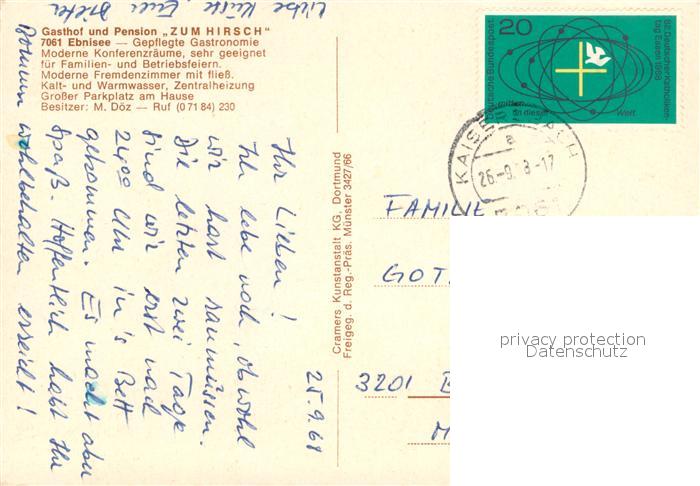 Gasthof und Pension „ZUM HIRSCH"
7061 Ebnisee — Gepflegte Gastronomie
Moderne Konferenzräume, sehr geeignet
für Familien- und Betriebsfeiern.
Moderne Fremdenzimmer mit fließ.
Kalt- und Warmwasser, Zentralheizung
Großer Parkplatz am Hause
Besitzer: M. Döz — Ruf (0 71 84) 230
25.9.68
Ihr Lieben!
Ich lebe noch, obwohl
wir hart
Die letzten zwei Tage
sind wir erst nach
24°° Uhr in's Bett
gekommen. Es macht aber
Spaß. Hoffentlich habt Ihr
wohlbehalten erreicht!
Liebe Küsse, Euer
Cramers Kunstanstalt KG. Dortmund
Freigeg. d. Reg.-Präs. Münster 3427/66
20
Deutsche Bundespost
82. Deutscher Katholikentag Essen 1968
mitten
in dieser
Welt
a
26.-9.68-17
FAMILIE
GOT
3201
privacy protection
Datenschutz